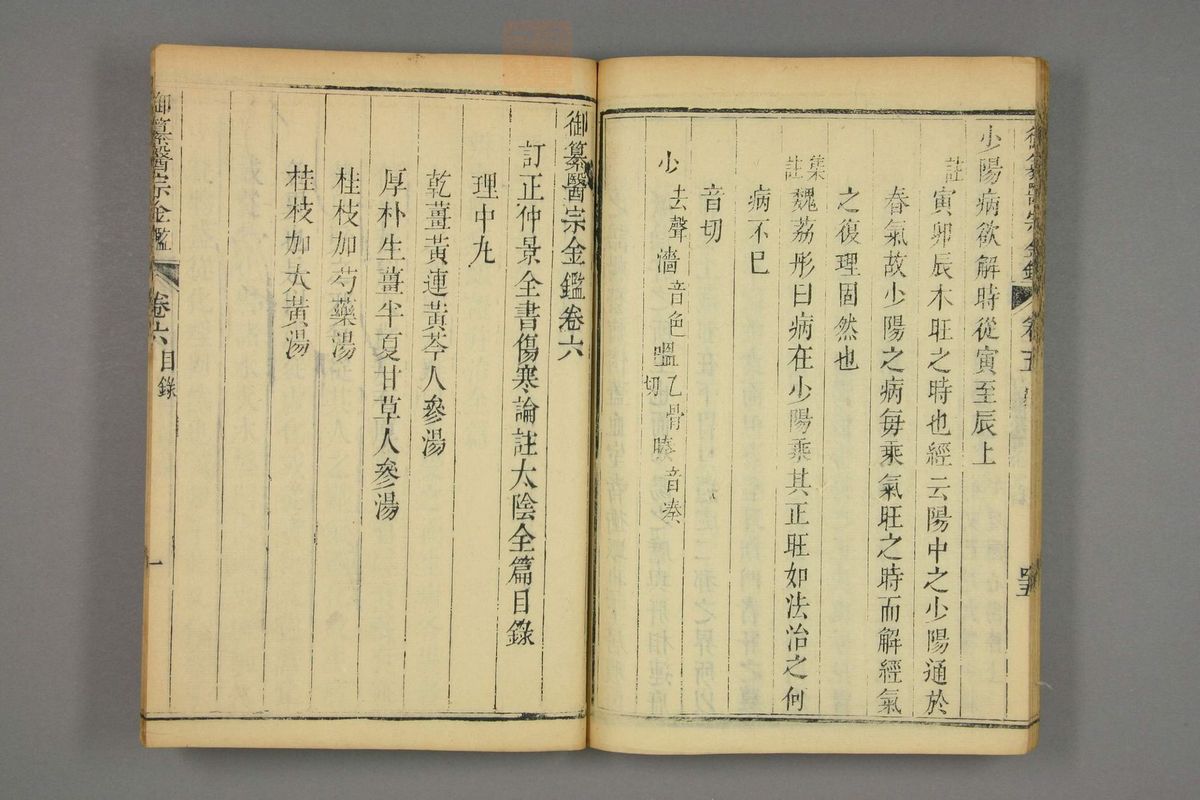 少陽病欲解時從寅至辰上
註寅卯辰木旺之時也經云陽中之少陽通於
春氣故少陽之病每乘氣旺之時而解經氣
之復理固然也
集註魏荔彤曰病在少陽乘其正旺如法治之何
病不已
音切
少去聲 濇音色 嗢乙骨切 腠音湊
御纂醫宗金鑑卷六
訂正仲景全書傷寒論註太陰全篇目錄
理中丸
乾薑黃連黃芩人參湯
厚朴生薑半夏甘草人參湯
桂枝加芍藥湯
桂枝加大黃湯
御纂醫宗金鑑 卷六 目錄 一